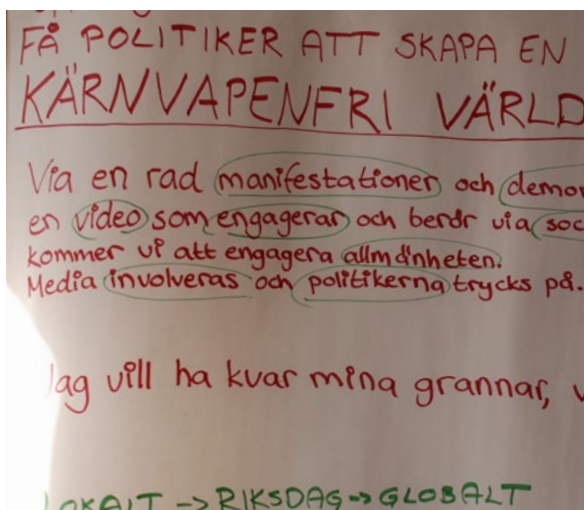 FÅ POLITIKER ATT SKAPA EN
KÄRNVAPENFRI VÄRLD
Via en rad manifestationer och demon
en video som engagerar och berör via soc
kommer vi att engagera allmänheten.
Media involveras och politikerna trycks på.
Jag vill ha kvar mina grannar, v
LOKALT -> RIKSDAG -> GLOBALT